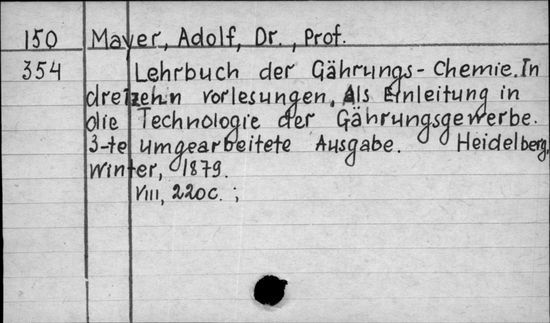 150 Mayer, Adolf, Dr., Prof.
354 Lehrbuch der Gährungs-Chemie. In
dreizehn vorlesungen. Als Einleitung in
die Technologie der Gährungsgewerbe.
3-te umgearbeitete Ausgabe. Heidelberg,
Winter, 1879.
VIII, 220c. ;